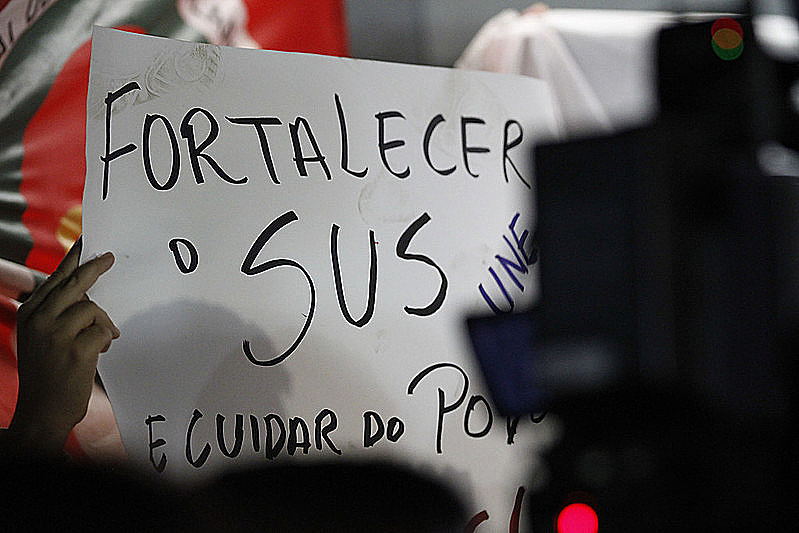 FORTALECER
O SUS
UNE
E CUIDAR DO